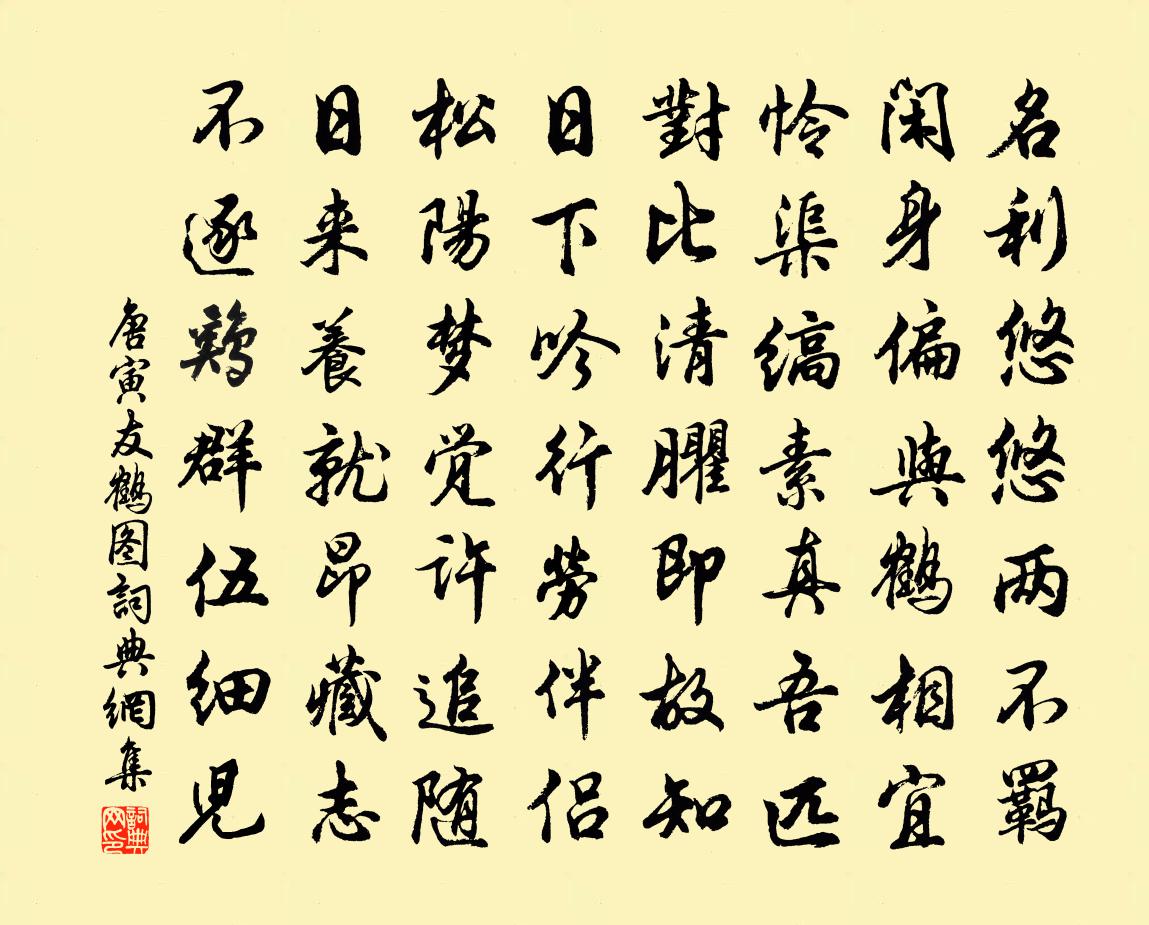 名利悠悠两不羈
闲身偏與鹤相宜
怜渠縞素真吾匹
對比清臞即故知
日下吟行劳伴侣
松陽梦觉许追随
日来養就昂藏志
不逐鷄群伍细児
唐寅友鹤图詞典網集
詞典
网印